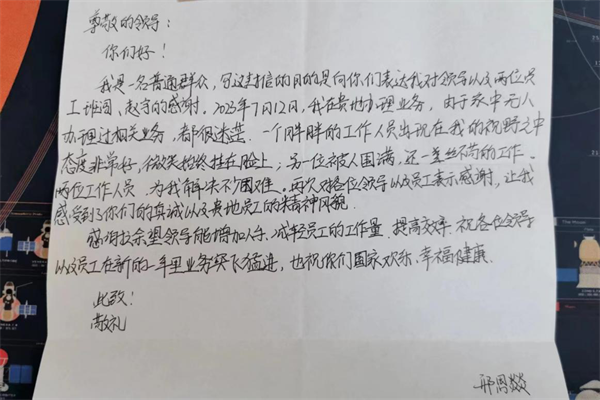 尊敬的领导:
你们好!
我是一名普通群众,写这封信的目的是向你们表达我对领导以及两位员
工 的感谢。2023年7月12日,我在贵地办理业务,由于家中无人
办理过相关业务,都很迷茫。一个胖胖的工作人员出现在我的视野之中
态度非常好,微笑始终挂在脸上;另一位被人围满,还一丝不苟的工作.
两位工作人员 为我解决不少困难。再次对各位领导以及员工表示感谢,让我
感受到了你们的真诚以及贵地员工的精神风貌.
感谢 望领导能增加人手、减轻员工的工作量、提高效率.祝各位领导
以及员工在新的一年里业务突飞猛进,也祝你们阖家欢乐、幸福健康.
此致!
敬礼
邢